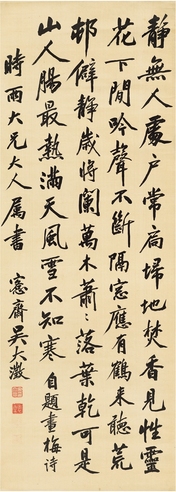 靜無人處戶常扃掃地焚香見性靈
花下閒吟聲不斷隔窗應有鶴來聽荒
邨僻靜歲將闌萬木蕭〻落葉乾可是
山人腸最熱滿天風雪不知寒 自題畫梅詩
時雨大兄大人屬書 愙齋吳大澂